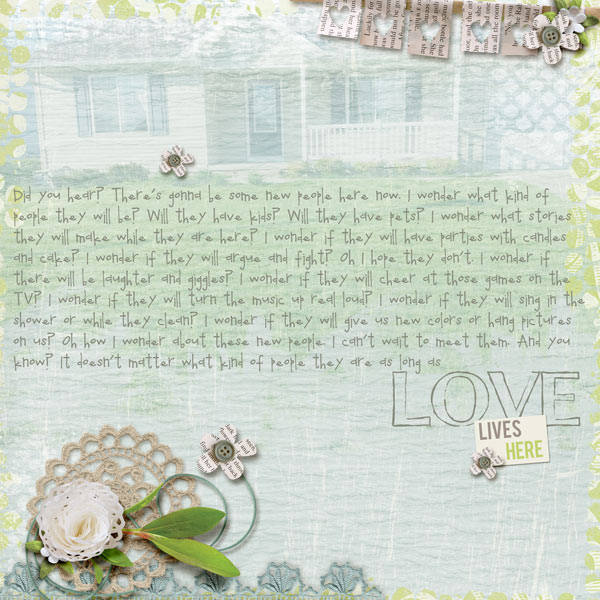 Did you hear? There's gonna be some new people here now. I wonder what kind of
people they will be? Will they have kids? Will they have pets? I wonder what stories
they will make while they are here? I wonder if they will have parties with candles
and cake? I wonder if they will argue and fight? Oh I hope they don't. I wonder if
there will be laughter and giggles? I wonder if they will cheer at those games on the
TV? I wonder if they will turn the music up real loud? I wonder if they will sing in the
shower or while they clean? I wonder if they will give us new colors or hang pictures
on us? Oh how I wonder about these new people. I can't wait to meet them. And you
know? It doesn't matter what kind of people they are as long as
LOVE
LIVES
HERE